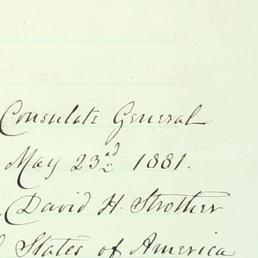 Consulate General
May 23rd 1881.
David H. Strother
States of America